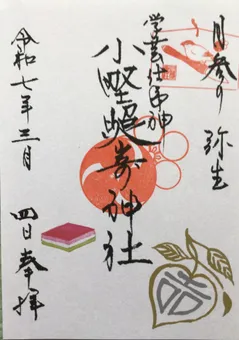 月参り 弥生
学芸仕事神
小埜照嵜神社
令和七年三月 四日奉拝